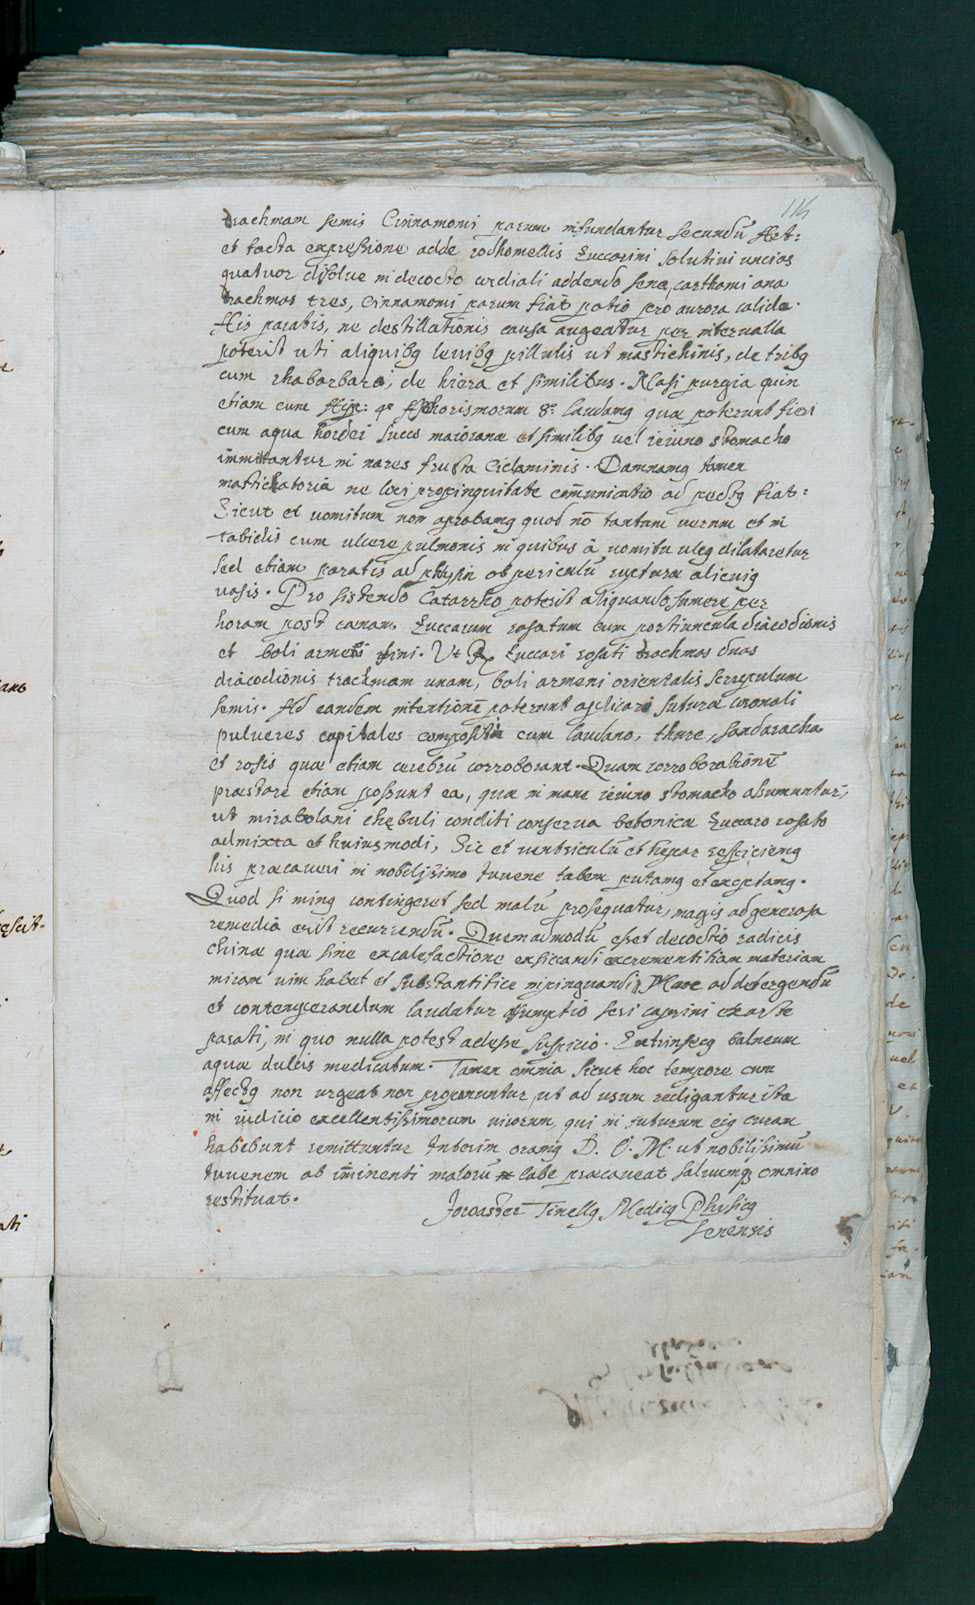 116
drachmam semis Cinnamomi parum infundantur secundũ Art:
et facta expressione adde rodhomellis Zuccarini solutivi uncias
quatuor dissolue in decocto cordiali addendo senę, carthami ana
drachmas tres, Cinnamomi parum fiat potio pro aurora calide.
His paratis, ne destillationis causa augeatur per interualla
poterit uti aliquibꝯ leuibꝯ pillulis ut mastichinis, de tribꝯ
cum rhabarbaro, de hiera et similibus. Nasi purgia quin
etiam cum Hip: 4º Aphorismorum 8º laudamꝯ quæ poterunt fieri
cum aqua hordei succo maioranæ et similibꝯ vel ieiuno stomacho
immittantur in nares frusta Ciclaminis. Damnamꝯ tamen
mastichatoria ne loci propinquitate com̃unicatio ad pectꝯ fiat:
Sicut et uomitum non aprobamꝯ quod nõ tantum uerum et in
tabidis cum ulcere pulmonis in quibus à uomitu ulcꝯ dilataretur
sed etiam paratis ad phtysin ob periculũ rupturæ alicuiꝯ
uasis. Pro sistendo Catarrho poterit aliquando sumere per
horam post cænam Zuccarum rosatum cum portiuncula diacodionis
et boli armeni fini. Vt ℞ Zuccari rosati drachmas duas
diacodionis drachmam unam, boli armeni orientalis scrupulum
semis. Ad eandem intentionẽ poterunt aplicari suturæ coronali
pulueres capitales compositi cum laudano, thure, sandaracha
et rosis quæ etiam cerebrũ corroborant. Quam corroborationẽ
præstare etiam possunt ea, quæ in mane ieiuno stomacho assumuntur,
ut mirabolani chębuli conditi conserua betonicæ Zuccaro rosato
admixta et huiusmodi, Sic et uentriculũ et hepar respiciemꝯ
his præcaueri in nobilissimo Iuuene tabem putamꝯ et exoptamꝯ.
Quod si minꝯ contingeret sed malũ prosequatur, magis ad generosa
remedia erit recurrendũ. Quemadmodũ esset decoctio radicis
chinæ quæ sine excalefactione exsiccandi excrementitiam materiam
miram uim habet et substantificè inpinguandi, Mane ad detergendũ
et contemperandum laudatur assumptio seri caprini ex arte
parati, in quo nulla potest adesse suspicio. Extrinsecꝯ balneum
aquæ dulcis medicatum. Tamen omnia sicut hoc tempore cum
affectꝯ non urgeat non proponuntur, ut ad usum redigantur ita
in iudicio excellentissimorum uirorum, qui in futurum eiꝯ curam
habebunt remittuntur Interim oramꝯ D. O. M. ut nobilissimũ
Iuuenem ab im̃inenti malorũ labe præcaueat saluumqꝫ omnino
restituat.
Joroaster Tinellꝯ Medicꝯ Physicꝯ
Senensis